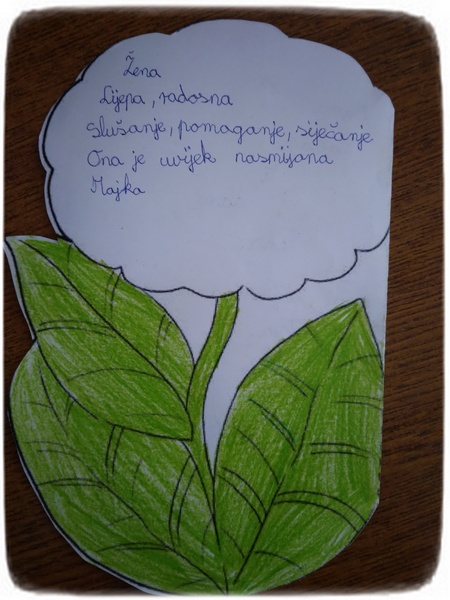 Žena
Lijepa, radosna
Slušanje, pomaganje, siječanje
Ona je uvijek nasmijana
Majka